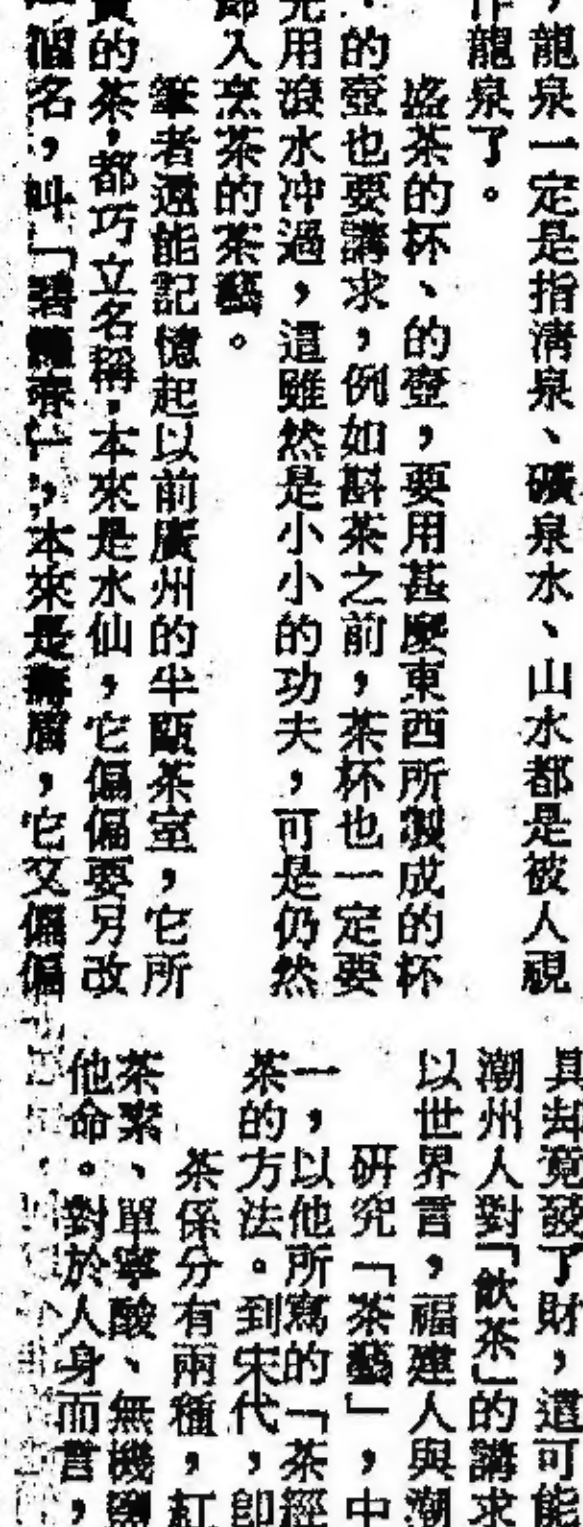 ，龍泉一定是指清泉、礦泉水、山水都是被人視
作龍泉了。
盛茶的杯、的壺，要用甚麼東西所製成的杯
、的壺也要講求，例如斟茶之前，茶杯也一定要
先用滾水冲過，這雖然是小小的功夫，可是仍然
入烹茶的茶藝。
筆者還能記憶起以前廣州的半甌茶室，它所
賣的茶，都巧立名稱，本來是水仙，它偏偏要另改
個名，叫「碧龍春」，本來是壽眉，它又偏偏
具却竟發了財，還可能
潮州人對「飲茶」的講求
以世界言，福建人與潮
研究「茶藝」，中
一，以他所寫的「茶經
茶的方法。到宋代，即
茶係分有兩種，紅
茶素、單寧酸、無機鹽
他命。對於人身而言，